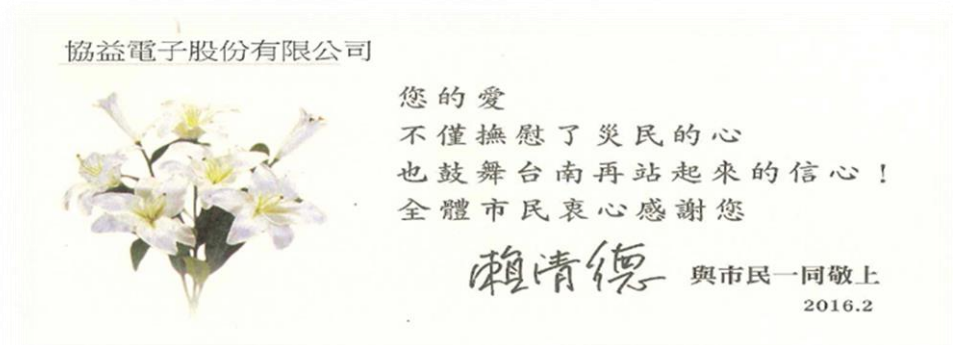 協益電子股份有限公司
您的愛
不僅撫慰了災民的心
也鼓舞台南再站起來的信心!
全體市民衷心感謝您
賴清德 與市民一同敬上
2016.2